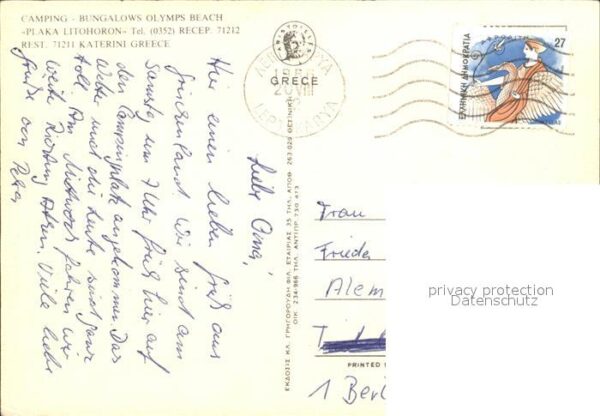 CAMPING - BUNGALOWS OLYMPS BEACH
«PLAKA LITOHORON» Tel. (0352) RECEP. 71212
REST. 71211 KATERINI GREECE
Liebe Oma,
Hier einen lieben Gruß aus
Griechenland. Wir sind am
Samstag um 7 Uhr früh hier auf
den Campingplatz angekommen. Das
Wetter und die Leute sind ganz
toll. Am Mittwoch fahren wir
weiter Richtung Athen. Viele liebe
Grüße von Peter
GRECE
27
ΕΛΛΗΝΙΚΗ ΔΗΜΟΚΡΑΤΙΑ
ΑΦΡΟΔΙΤΗ
ΕΚΔΟΣΙΣ ΚΛ. ΓΡΗΓΟΡΟΥΔΗ ΦΙΛ. ΕΤΑΙΡΙΑΣ 35 ΤΗΛ. ΑΠΟΘ. 263-029 ΘΕΣ/ΝΙΚΗ
ΟΙΚ. 234-986 ΤΗΛ. ΑΝΤΙΠΡ. 730-473
Frau
Frieda
Alem
PRINTED
1 Berl
privacy protection
Datenschutz